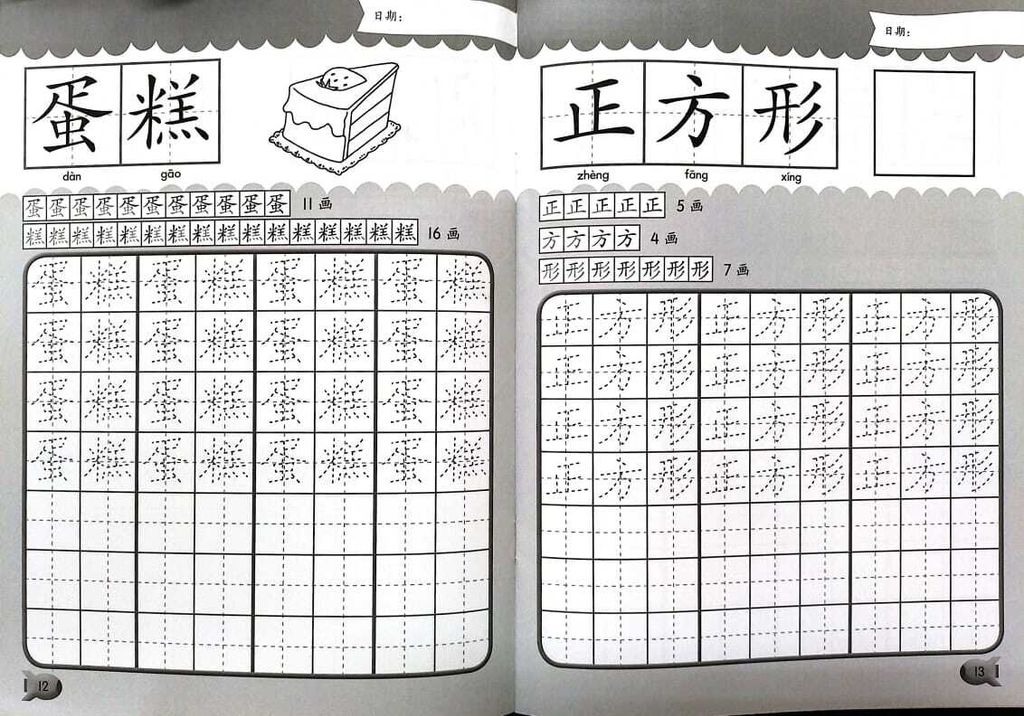 日期：
蛋糕
dàn gāo
蛋蛋蛋蛋蛋蛋蛋蛋蛋蛋蛋 11画
糕糕糕糕糕糕糕糕糕糕糕糕糕糕糕糕 16画
蛋糕蛋糕蛋糕蛋糕
蛋糕蛋糕蛋糕蛋糕
蛋糕蛋糕蛋糕蛋糕
蛋糕蛋糕蛋糕蛋糕
12
日期：
正方形
zhèng fāng xíng
正正正正正 5画
方方方方 4画
形形形形形形形 7画
正方形正方形正方形
正方形正方形正方形
正方形正方形正方形
正方形正方形正方形
13